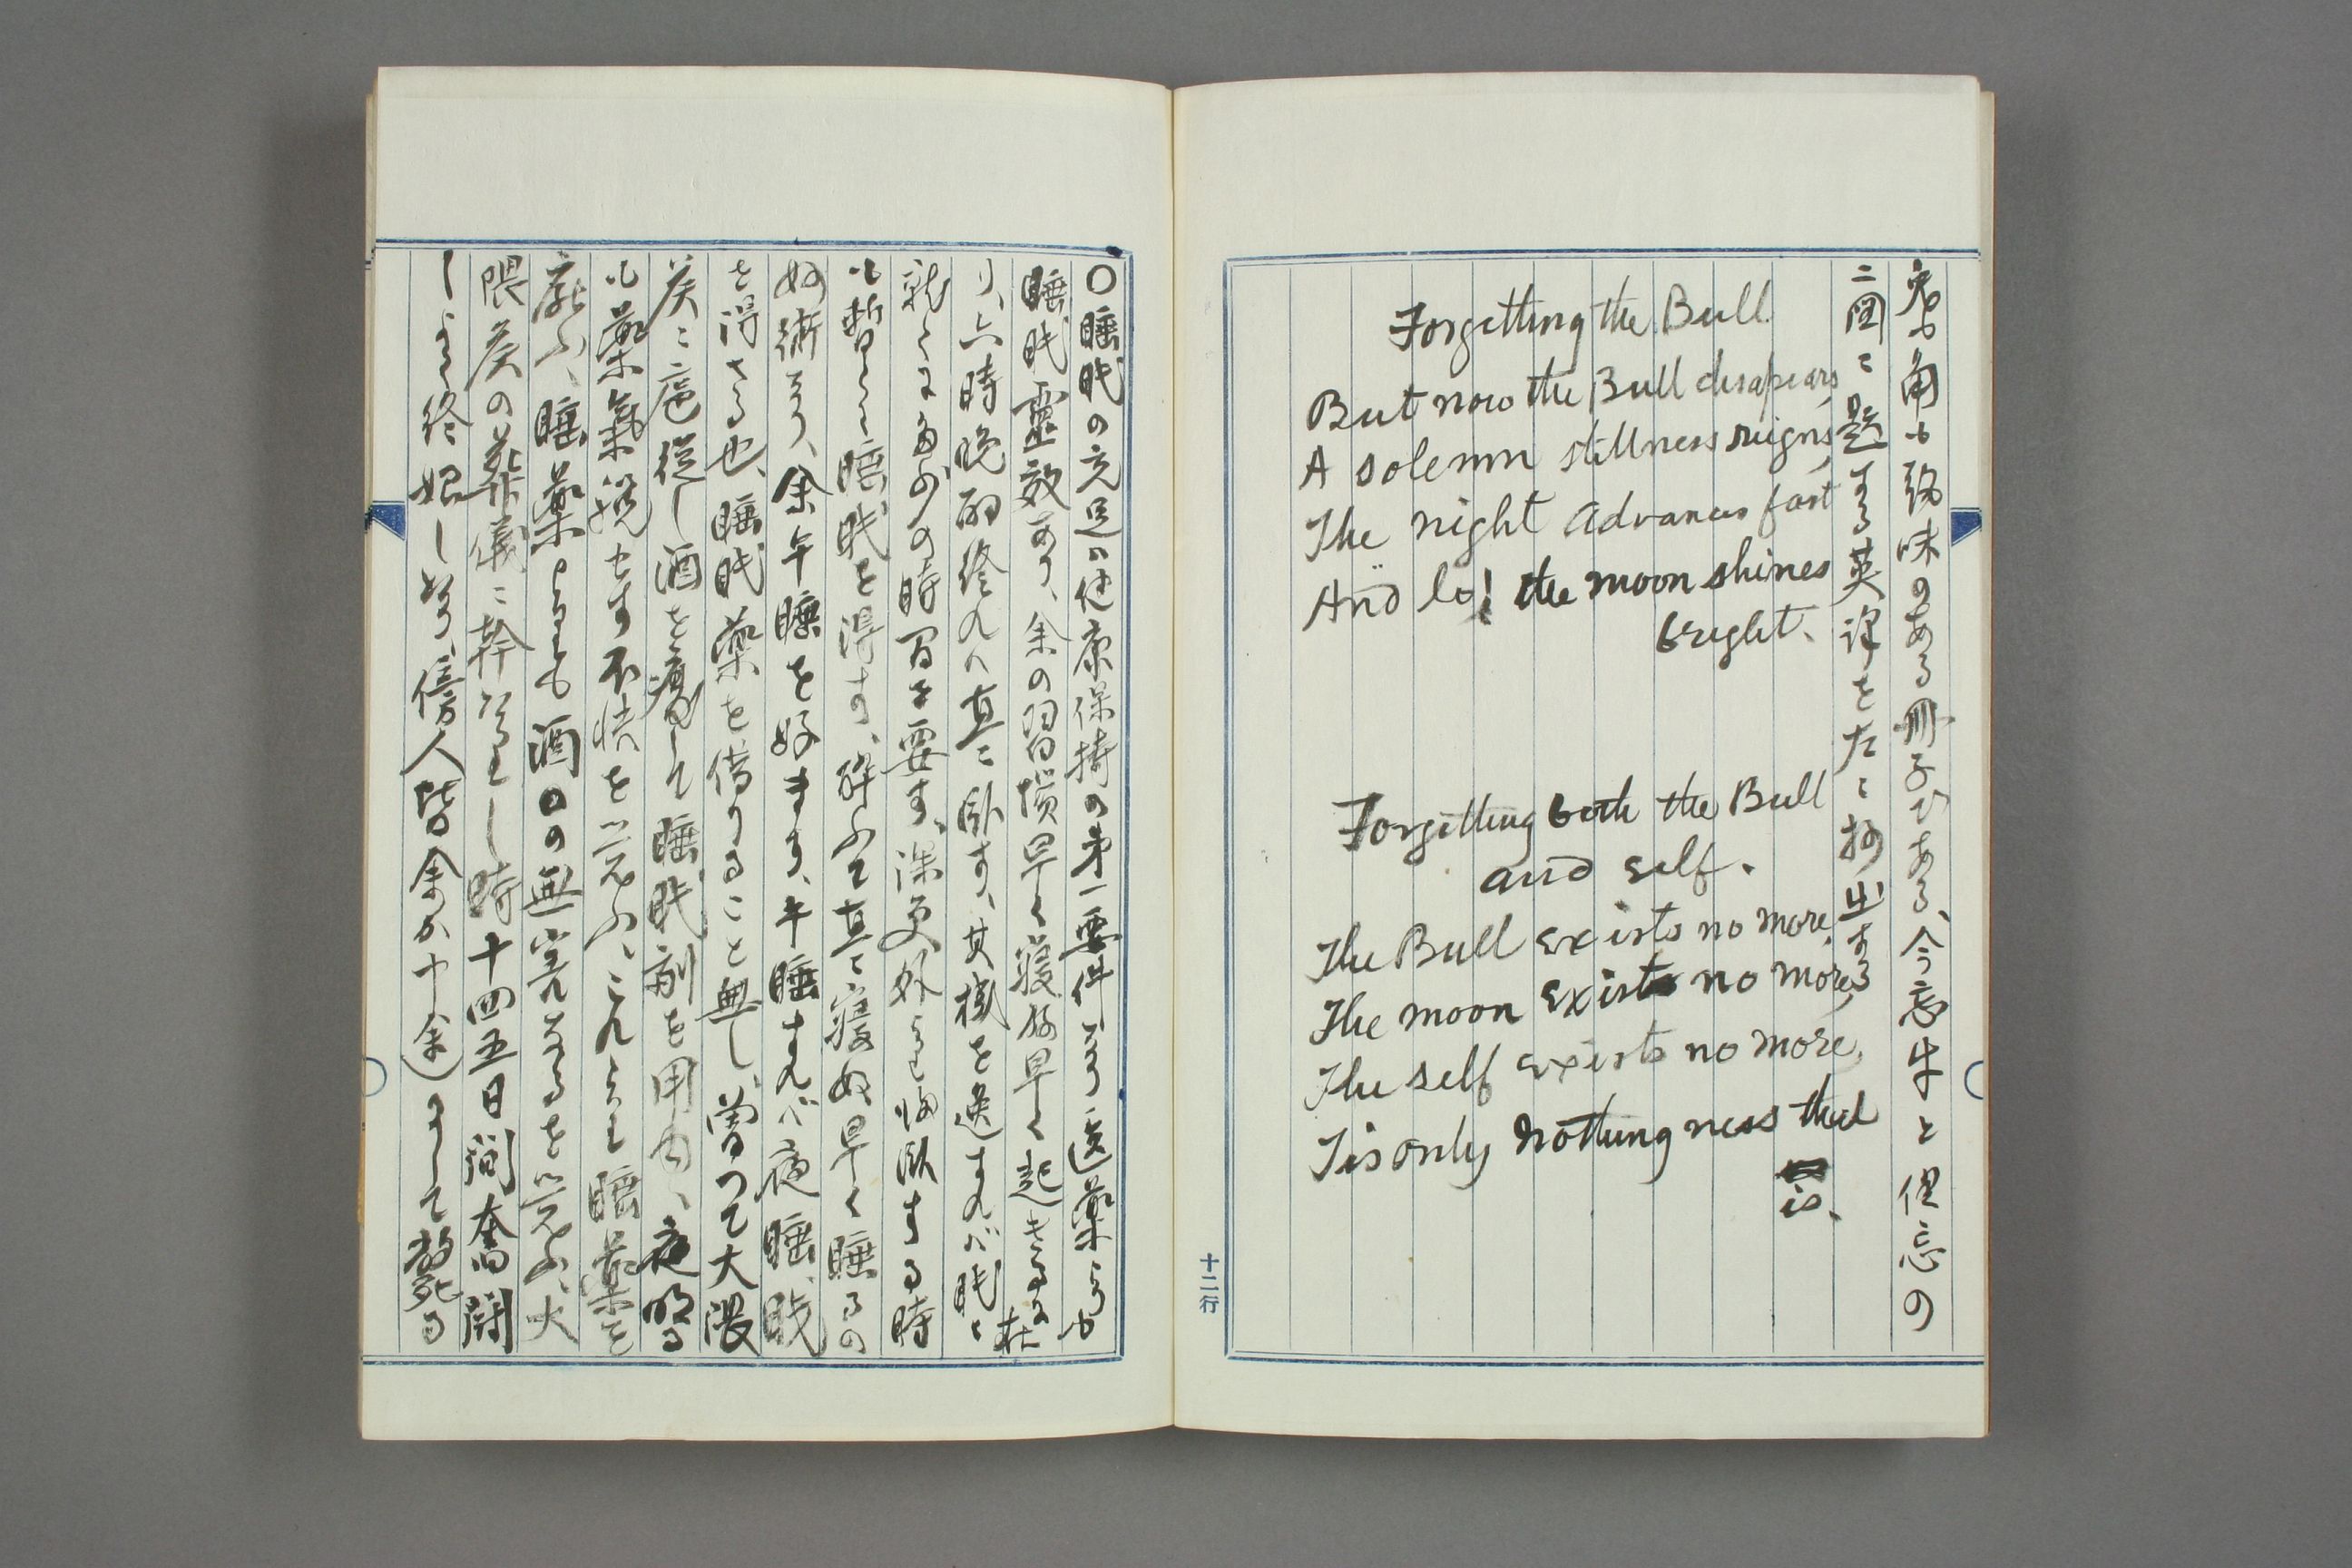 兎角も致味のある冊子である、今忘牛と俱忘の
二図ニ題する英訳を左ニ抄出する
Forgetting the Bull
But now the Bull disapears,
A solemn stillness reigns,
The night advances fast
And lo! the moon shines
bright.
Forgetting both the Bull
and self.
The Bull exists no more,
The moon exists no more,
The self exists no more,
Tis only nothingness that
is.
十二行
〇睡眠の充足ハ健康保持の第一要件なり 医薬よりも
睡眠霊效あり、余の習慣早く寝ね早く起きるに在
り、六時晩酌終れハ直ニ臥す、其機を逸すれバ眠ニ
就くに多少の時間を要す、深更外より帰臥する時
も暫らく睡眠を得す、酔ふて直ニ寝ぬ早く睡るの
好術なり、余午睡を好ます、午睡すれバ夜睡眠
を得さる也、睡眠薬を借りること無し、曽つて大隈
侯ニ扈従し酒を廃して睡眠剤を用ゆ、夜明る
も薬気脱せす不快を覚ふ、これより睡薬を
廃ふ、睡薬よりも酒の無害なるを覚ふ、大
隈侯の葬儀ニ幹なりし時十四五日間奮闘
しよく終始しぬ、傍人皆余か(中余)よくて斃る